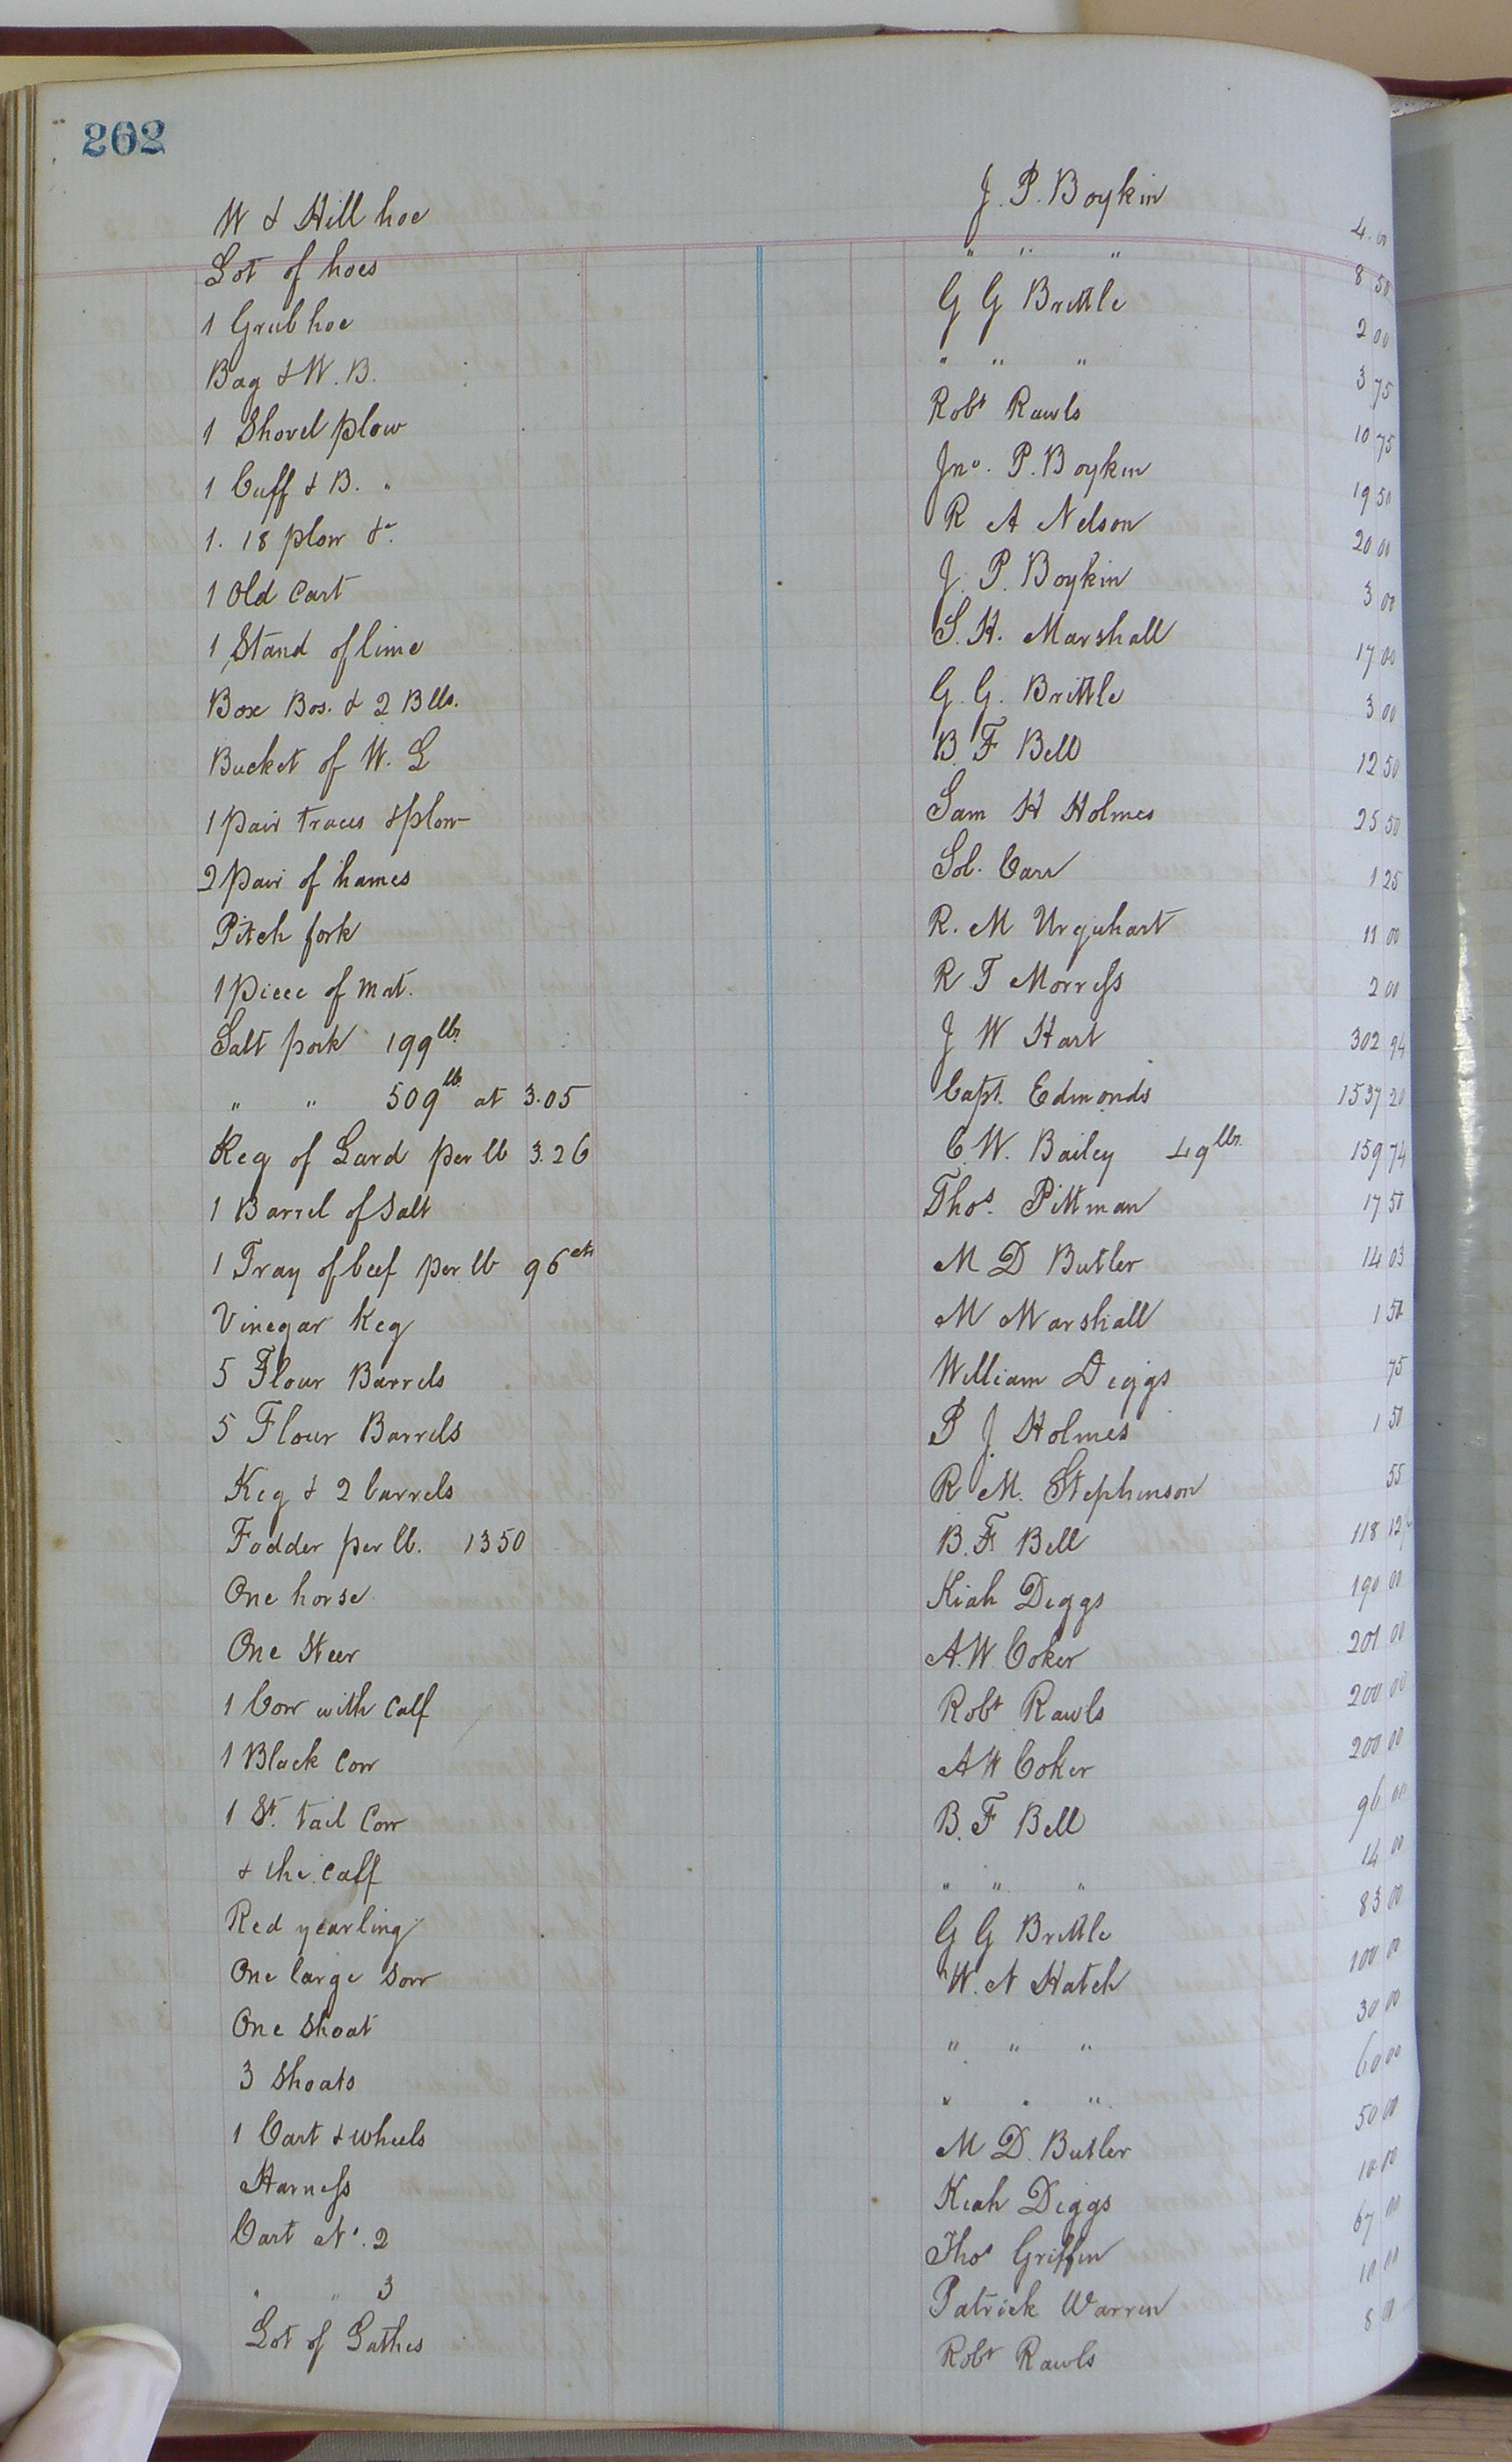 202
W & Hill hoe J. P. Boykin 4.00
Lot of hoes " " " 8 50
1 Grub hoe G G Brittle 2 00
Bag & W. B. " " " 3 75
1 Shovel plow Robt Rawls 10 75
1 Cuff & B. " Jno. P. Boykin 19 50
1. 18 plow &c R A Nelson 20 00
1 Old Cart J. P. Boykin 3 00
1 Stand of lime S. H. Marshall 17 00
Box Bos. & 2 Blls. G. G. Brittle 3 00
Bucket of W. L B. F Bell 12 50
1 pair traces & plow Sam H Holmes 25 50
2 pair of hames Sol. Carr 1 25
Pitch fork R. M Urquhart 11 00
1 piece of mat. R T Morress 2 00
Salt pork 199 lbs. J W Hart 302 94
" " 509 lb at 3.05 Capt. Edmonds 1537 20
Keg of Lard per lb 3.26 C. W. Bailey 49 lbs. 159 74
1 Barrel of Salt Thos. Pittman 17 50
1 Tray of beef per lb 96 cts M D Butler 14 03
Vinegar Keg M Marshall 1 50
5 Flour Barrels William Diggs 75
5 Flour Barrels P J Holmes 1 50
Keg & 2 barrels R M. Stephenson 55
Fodder per lb. 1350 B. F. Bell 118 12½
One horse Kiah Diggs 190 00
One Steer A. W. Coker 201 00
1 Cow with Calf Robt Rawls 200 00
1 Black Cow A W Coker 200 00
1 St. tail Cow B. F Bell 96 00
& the Calf " " " 14 00
Red yearling G G Brittle 83 00
One large Sow W. N Hatch 100 00
One Shoat " " " 30 00
3 Shoats " " " 60 00
1 Cart & wheels M D. Butler 50 00
Harness Kiah Diggs 10 00
Cart No. 2 Thos Griffin 67 00
" " 3 Patrick Warren 10 00
Lot of Lathes Robt Rawls 8 00